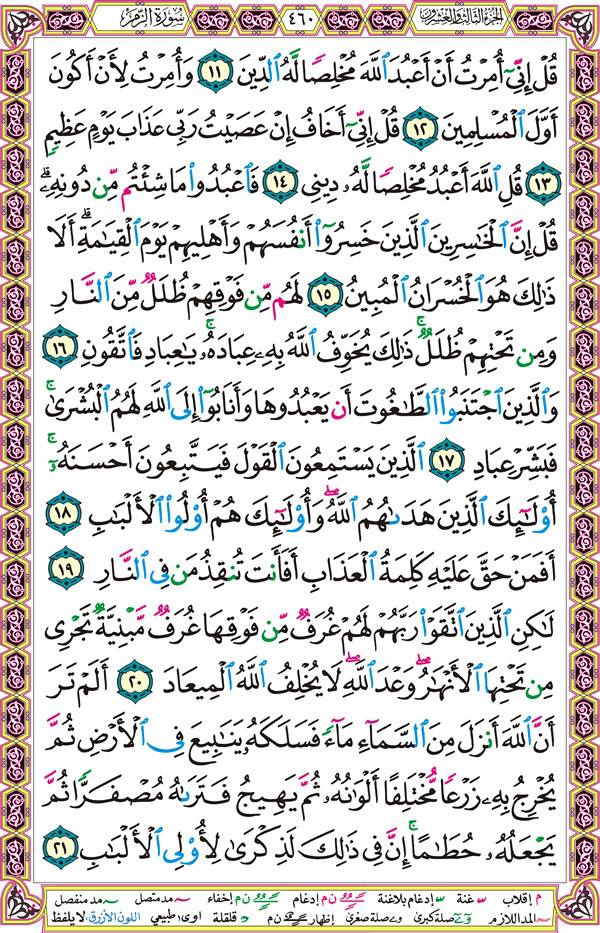 الجزء الثالث والعشرون
٤٦٠
سورة الزمر
قُلْ إِنِّيٓ أُمِرْتُ أَنْ أَعْبُدَ ٱللَّهَ مُخْلِصًا لَّهُ ٱلدِّينَ ١١ وَأُمِرْتُ لِأَنْ أَكُونَ
أَوَّلَ ٱلْمُسْلِمِينَ ١٢ قُلْ إِنِّيٓ أَخَافُ إِنْ عَصَيْتُ رَبِّي عَذَابَ يَوْمٍ عَظِيمٍ
١٣ قُلِ ٱللَّهَ أَعْبُدُ مُخْلِصًا لَّهُۥ دِينِي ١٤ فَٱعْبُدُوا۟ مَا شِئْتُم مِّن دُونِهِۦۗ
قُلْ إِنَّ ٱلْخَٰسِرِينَ ٱلَّذِينَ خَسِرُوٓا۟ أَنفُسَهُمْ وَأَهْلِيهِمْ يَوْمَ ٱلْقِيَٰمَةِۗ أَلَا
ذَٰلِكَ هُوَ ٱلْخُسْرَانُ ٱلْمُبِينُ ١٥ لَهُم مِّن فَوْقِهِمْ ظُلَلٌ مِّنَ ٱلنَّارِ
وَمِن تَحْتِهِمْ ظُلَلٌۚ ذَٰلِكَ يُخَوِّفُ ٱللَّهُ بِهِۦ عِبَادَهُۥۚ يَٰعِبَادِ فَٱتَّقُونِ ١٦
وَٱلَّذِينَ ٱجْتَنَبُوا۟ ٱلطَّٰغُوتَ أَن يَعْبُدُوهَا وَأَنَابُوٓا۟ إِلَى ٱللَّهِ لَهُمُ ٱلْبُشْرَىٰۚ
فَبَشِّرْ عِبَادِ ١٧ ٱلَّذِينَ يَسْتَمِعُونَ ٱلْقَوْلَ فَيَتَّبِعُونَ أَحْسَنَهُۥٓۚ
أُو۟لَٰٓئِكَ ٱلَّذِينَ هَدَىٰهُمُ ٱللَّهُۖ وَأُو۟لَٰٓئِكَ هُمْ أُو۟لُوا۟ ٱلْأَلْبَٰبِ ١٨
أَفَمَنْ حَقَّ عَلَيْهِ كَلِمَةُ ٱلْعَذَابِ أَفَأَنتَ تُنقِذُ مَن فِي ٱلنَّارِ ١٩
لَٰكِنِ ٱلَّذِينَ ٱتَّقَوْا۟ رَبَّهُمْ لَهُمْ غُرَفٌ مِّن فَوْقِهَا غُرَفٌ مَّبْنِيَّةٌ تَجْرِي
مِن تَحْتِهَا ٱلْأَنْهَٰرُۖ وَعْدَ ٱللَّهِۖ لَا يُخْلِفُ ٱللَّهُ ٱلْمِيعَادَ ٢٠ أَلَمْ تَرَ
أَنَّ ٱللَّهَ أَنزَلَ مِنَ ٱلسَّمَآءِ مَآءً فَسَلَكَهُۥ يَنَٰبِيعَ فِي ٱلْأَرْضِ ثُمَّ
يُخْرِجُ بِهِۦ زَرْعًا مُّخْتَلِفًا أَلْوَٰنُهُۥ ثُمَّ يَهِيجُ فَتَرَىٰهُ مُصْفَرًّا ثُمَّ
يَجْعَلُهُۥ حُطَٰمًاۚ إِنَّ فِي ذَٰلِكَ لَذِكْرَىٰ لِأُو۟لِي ٱلْأَلْبَٰبِ ٢١
م إقلاب غنة إدغام بلاغنة ن م إدغام ن م إخفاء مد متصل مد منفصل
المد اللازم صلة كبرى صلة صغرى إظهار ن م قلقلة اوى طبيعي اللون الأزرق لا يلفظ